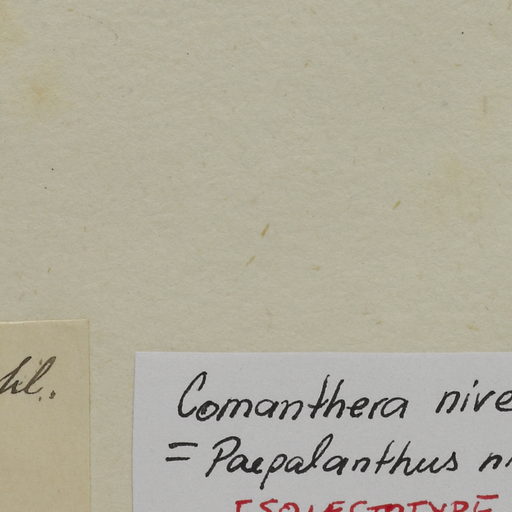 Comanthera nive
= Paepalanthus ni
ISOLECTOTYPE